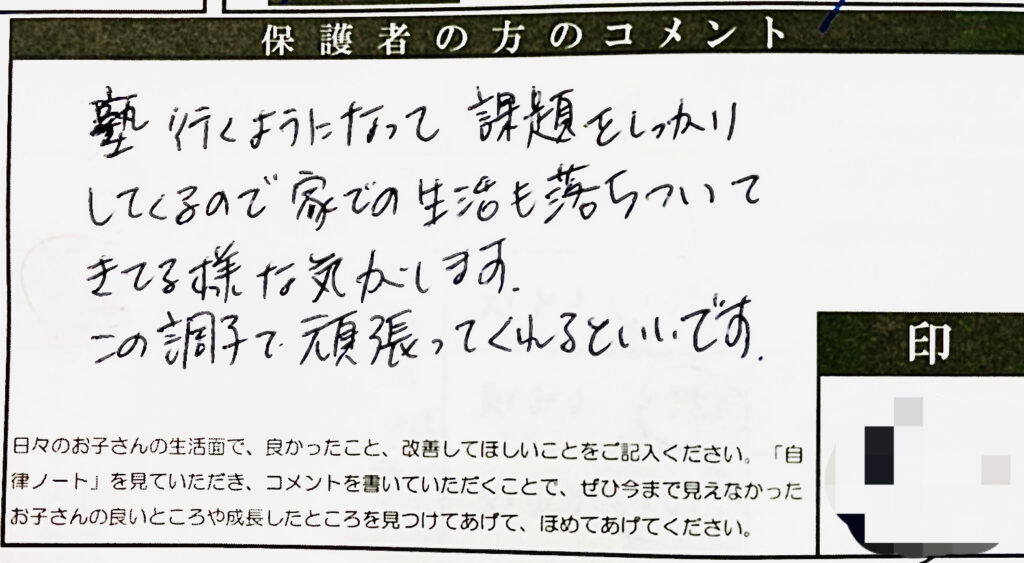 保護者の方のコメント
塾行くようになって課題をしっかり
してくるので家での生活も落ちついて
きてる様な気がします.
この調子で頑張ってくれるといいです.
印
日々のお子さんの生活面で、良かったこと、改善してほしいことをご記入ください。「自
律ノート」を見ていただき、コメントを書いていただくことで、ぜひ今まで見えなかった
お子さんの良いところや成長したところを見つけてあげて、ほめてあげてください。